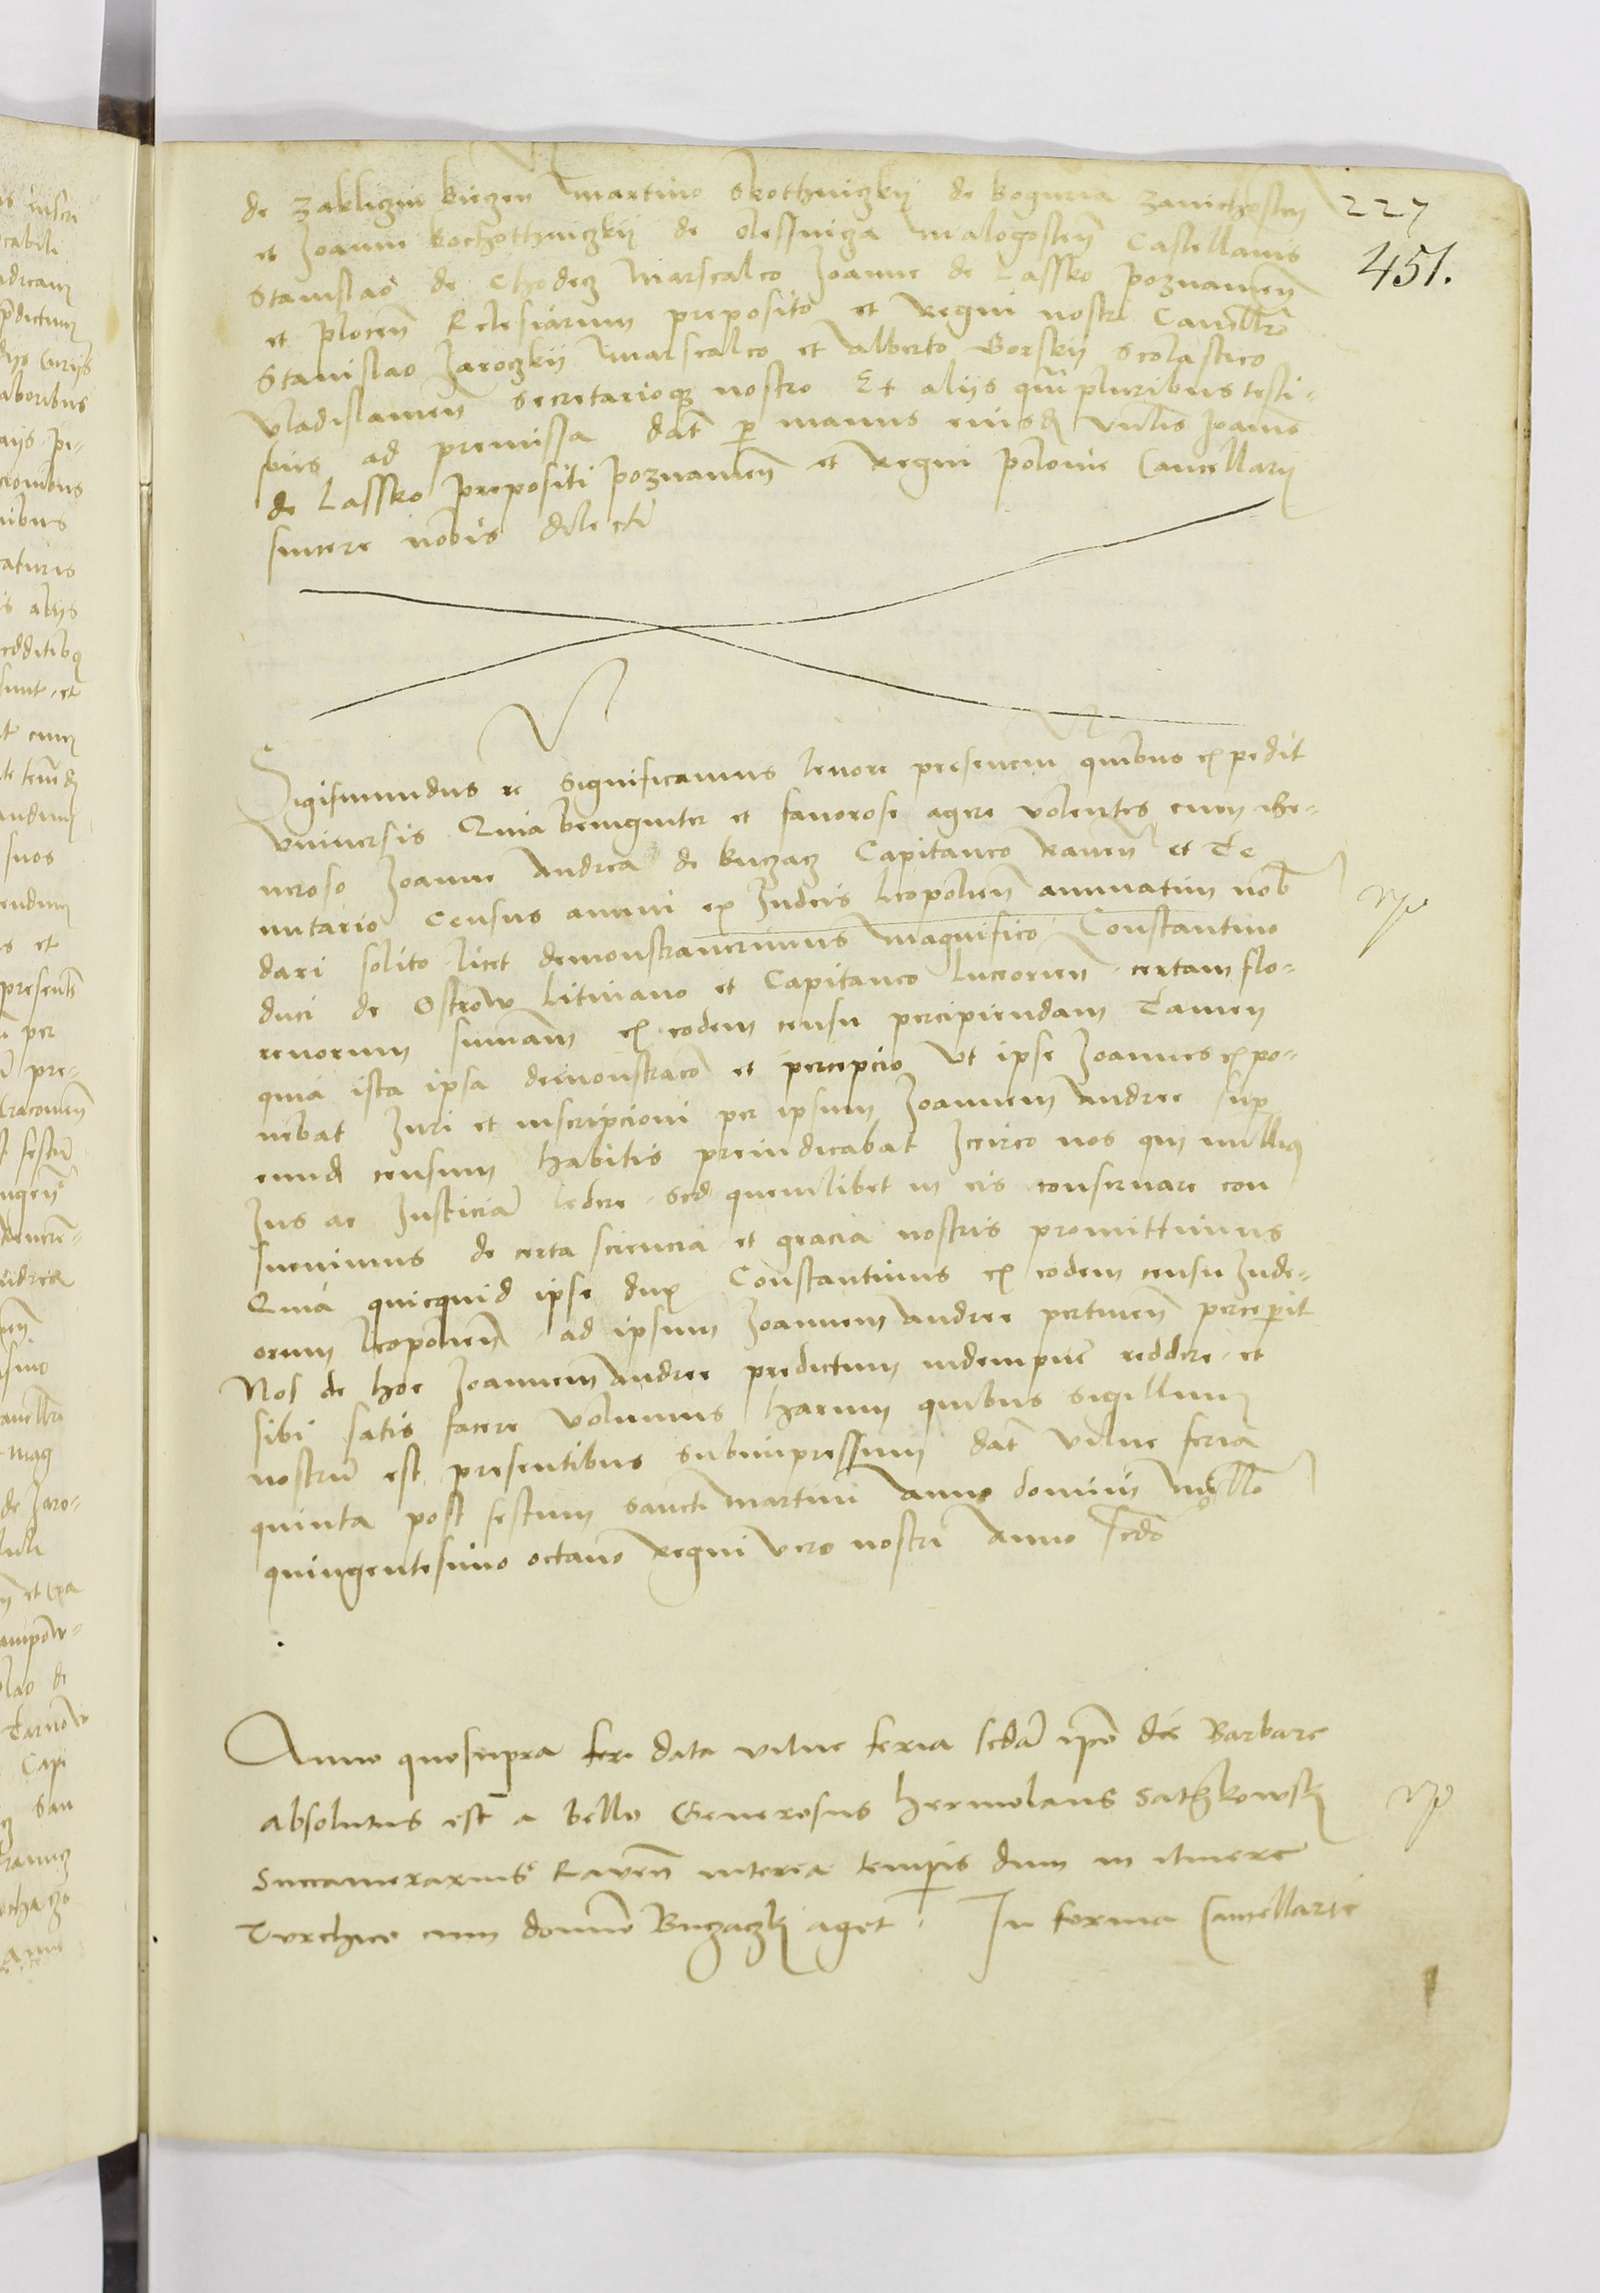 227
451.
de Zakliczin biczen Martino Skothniczkij de Boguria Zawichosten
et Joanni Kochothniczkij de olessnicza Malogosten Castellanis
Stanislao de Chodecz Marscalco Joanne de Lassko poznamen
et plocen Eclesiarum preposito et Regni nostri Cancellro
Stanislao Jaroczkij Marscalco et Alberto Gorskij Scolastico
Vladislamen secretarioq nostro Et aliis qm pluribus testi-
bus ad premissa dat p manus eiusd Vnlis Joannis
de Lassko prepositi poznamen et Regni polonie Cancellarij
sincere nobis dilecti
Sigismundus rc Significamus tenore presencium quibus expedit
Vniuersis Quia benigniter et fauorose agere volentes cum Ge-
neroso Joanne Andrea de buczacz Capitaneo Rauen et Te
nutario Census annui ex Judeis leopolien annuatim nob
dari solito licet demonstrauerimus Magnifico Constantino
duci de Ostrow lituano et Capitaneo luceorien certam flo-
renorum sumam ex eodem censu percipiendam Tamen
quia ista ipsa demonstraco et percepcio Vt ipse Joannes expo-
nebat Juri et inscripcioni per ipsum Joannem Andree sup
eund censum habitis preiudicabat Iccirco nos qui nulliq
Jus ac Justiciam ledere sed quemlibet in eis conseruare con
sueuimus de certa sciencia et gracia nostris promittimus
Quia quicquid ipse dux Constantinus ex eodem censu Jude-
orum leopolien ad ipsum Joannem Andree pertinen perceperit
Nos de hoc Joannem Andree predictum indempne reddere et
sibi satis facere Volumus harum quibus sigillum
nostrum est presentibus subimpressum dat vilne feria
quinta post festum sancti Martini Anno domini Millo
quingentesimo octauo Regni vero nostri Anno scdo
Anno quosupra feri data vilne feria scda ipso die Barbare
absolutus est a bello Generosus Hermolaus Satzkowskj
Succamerarius Rauen interea tempis dum in itinere
Turchico cum domino Buczaczkj aget. In forma Cancellarie